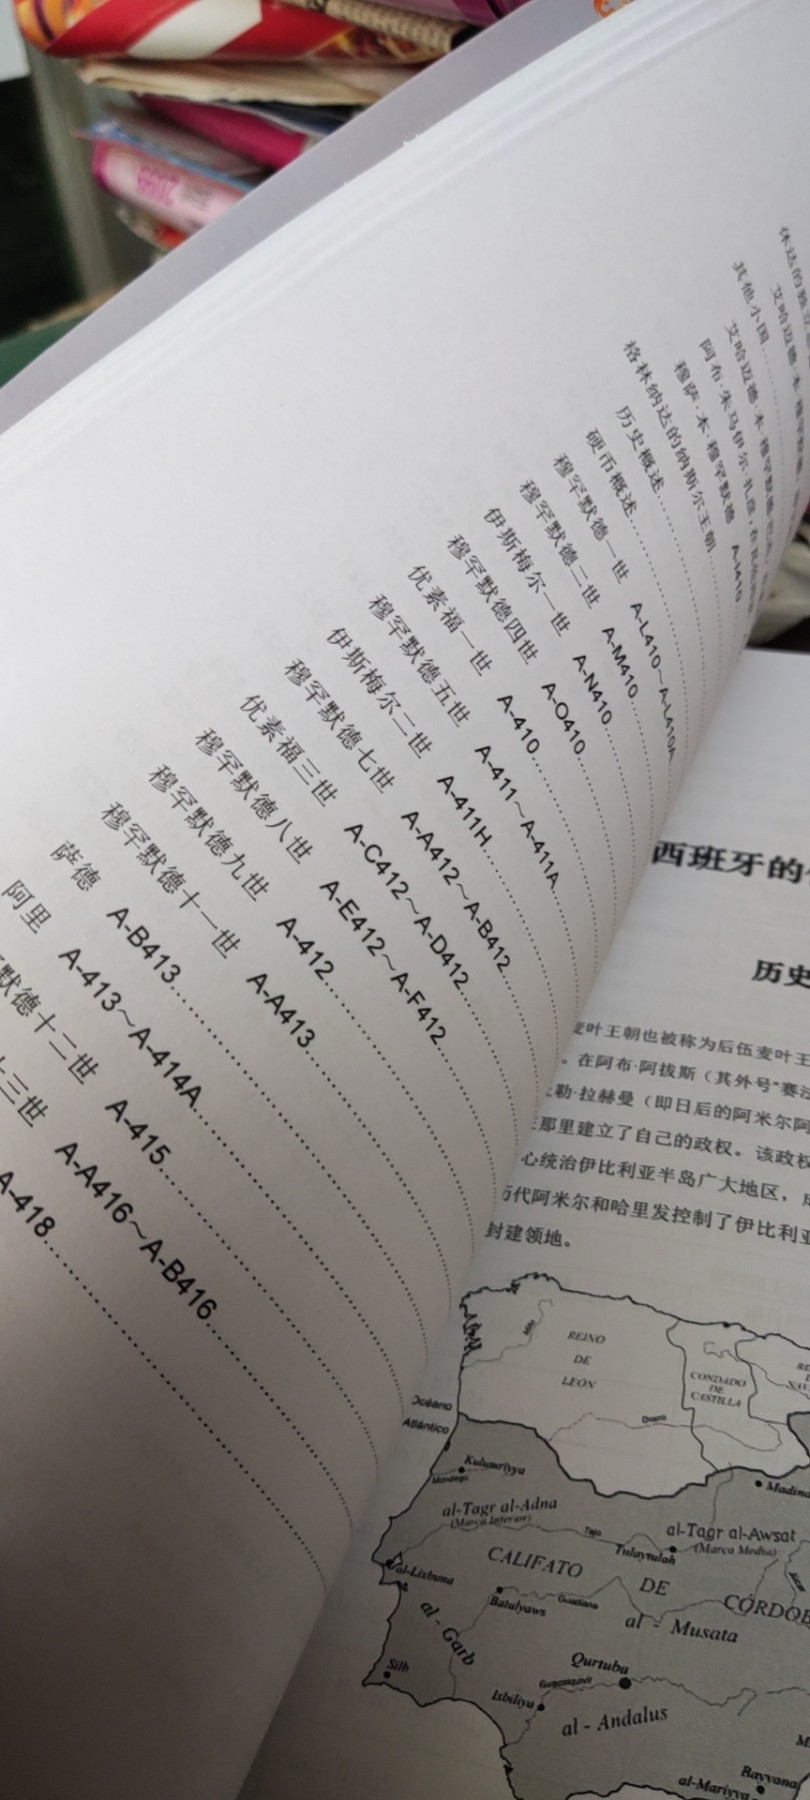 其他小国
穆萨·本·穆罕默德 A-I410
格林纳达的纳斯尔王朝
历史概述
硬币概述
穆罕默德一世 A-L410～A-L410A
穆罕默德二世 A-M410
伊斯梅尔一世 A-N410
穆罕默德四世 A-O410
优素福一世 A-410
穆罕默德五世 A-411～A-411A
伊斯梅尔二世 A-411H
穆罕默德七世 A-A412～A-B412
优素福三世 A-C412～A-D412
穆罕默德八世 A-E412～A-F412
穆罕默德九世 A-412
穆罕默德十一世 A-A413
萨德 A-B413
阿里 A-413～A-414A
默德十二世 A-415
十三世 A-A416～A-B416
A-418
西班牙的
历史
麦叶王朝也被称为后伍麦叶王
。在阿布·阿拔斯（其外号“赛法
勒·拉赫曼（即日后的阿米尔阿
那里建立了自己的政权。该政权
心统治伊比利亚半岛广大地区，成
历代阿米尔和哈里发控制了伊比利亚
封建领地。
REINO
DE
LEÓN
CONDADO
DE
CASTILLA
Océano
Atlántico
Duero
Kulumriyya
Mondego
al-Tagr al-Adna
(Marca Inferior)
Tajo
al-Tagr al-Awsat
(Marca Media)
Tulaytulah
al-Lixbuna
CALIFATO
DE
Batalyaws
Guadiana
al - Musata
al - Garb
Silb
Qurtuba
Guadalquivir
Isbiliya
al - Andalus
Rayyana
al-Mariyya